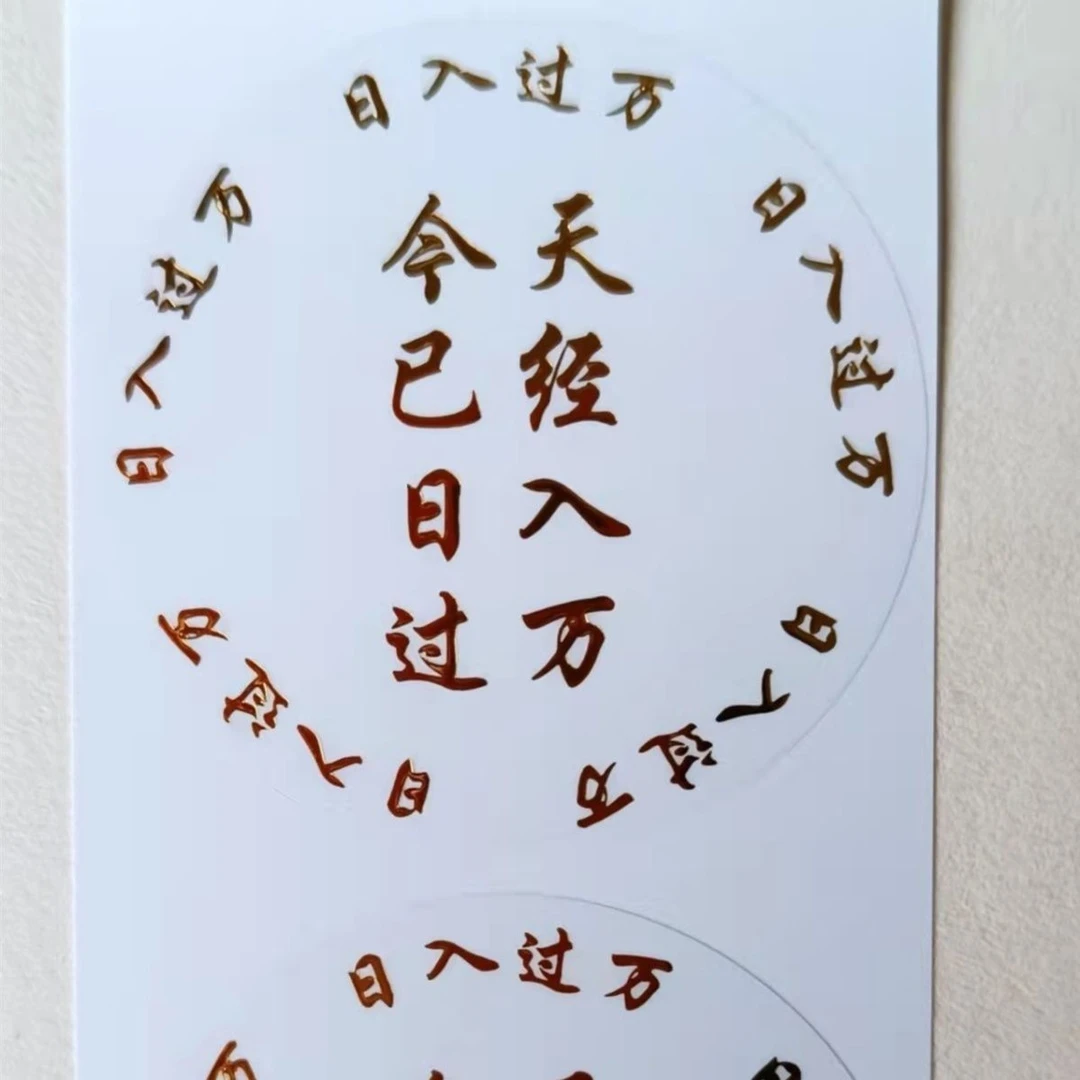 日入过万
日入过万
日入过万
日入过万
日入过万
今天
已经
日入
过万
日入过万